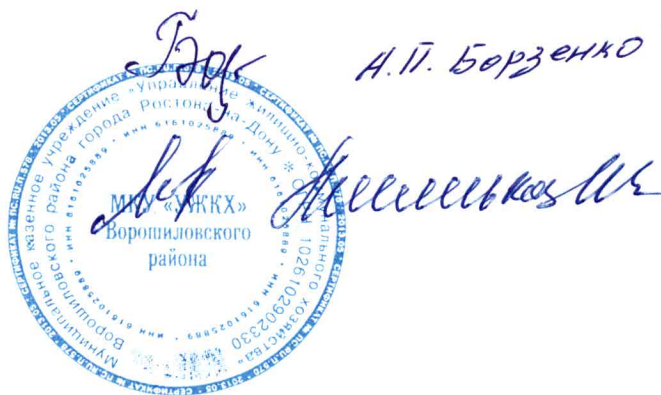 А.П. Борзенко
СЕРТИФИКАТ № ПС.RU.П.570 - 2013.05
Муниципальное казенное учреждение «Управление жилищно-коммунального хозяйства»
Ворошиловского района города Ростова-на-Дону * ОГРН 1026102902330
ИНН 6161025889
МКУ «УЖКХ»
Ворошиловского
района